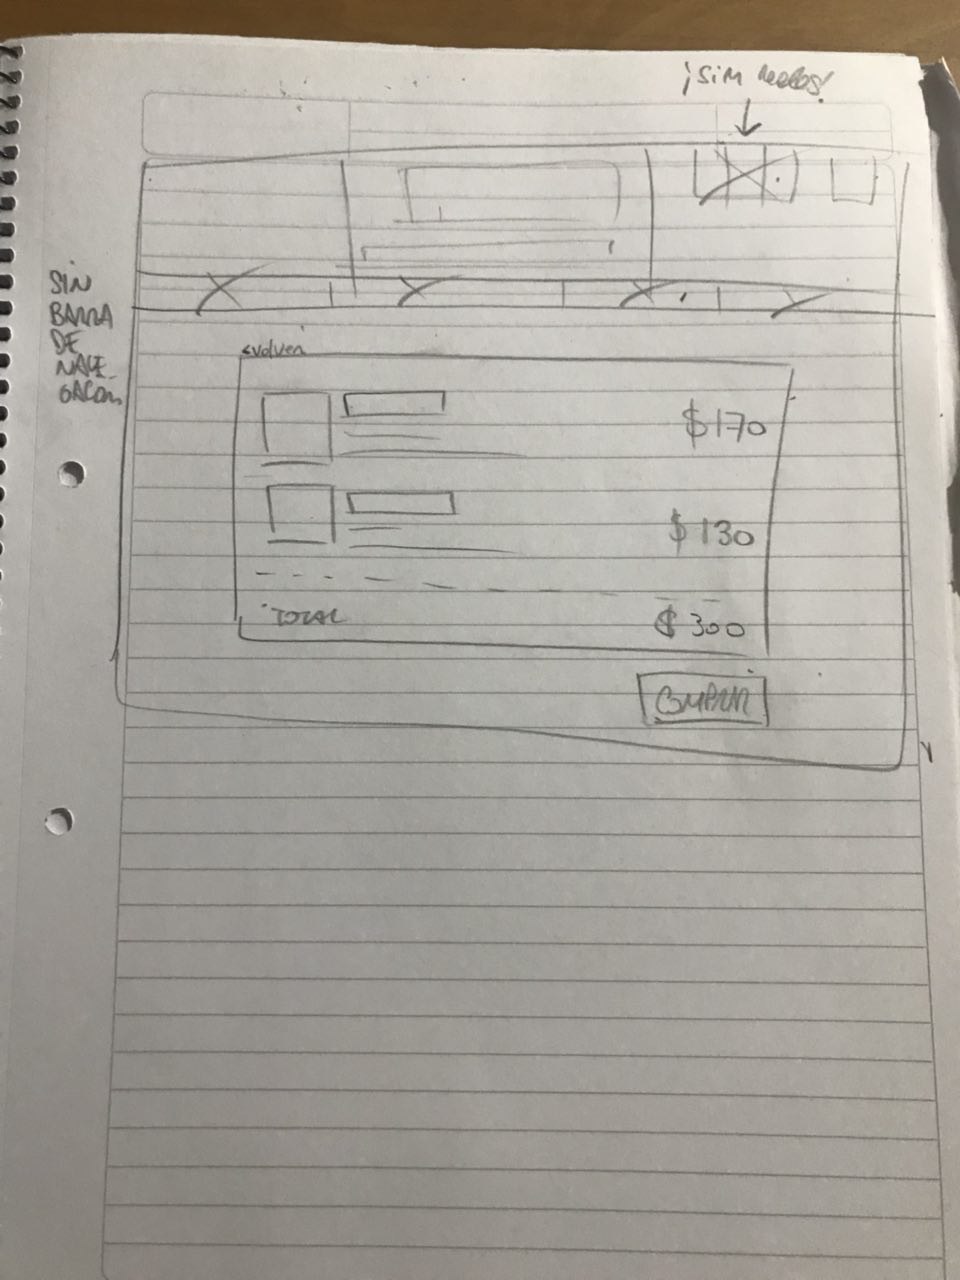 ¡SIN
SIN
BARRA
DE
NAVE-
GACION
<volver
$170
$130
TOTAL
$300
COMPRAR